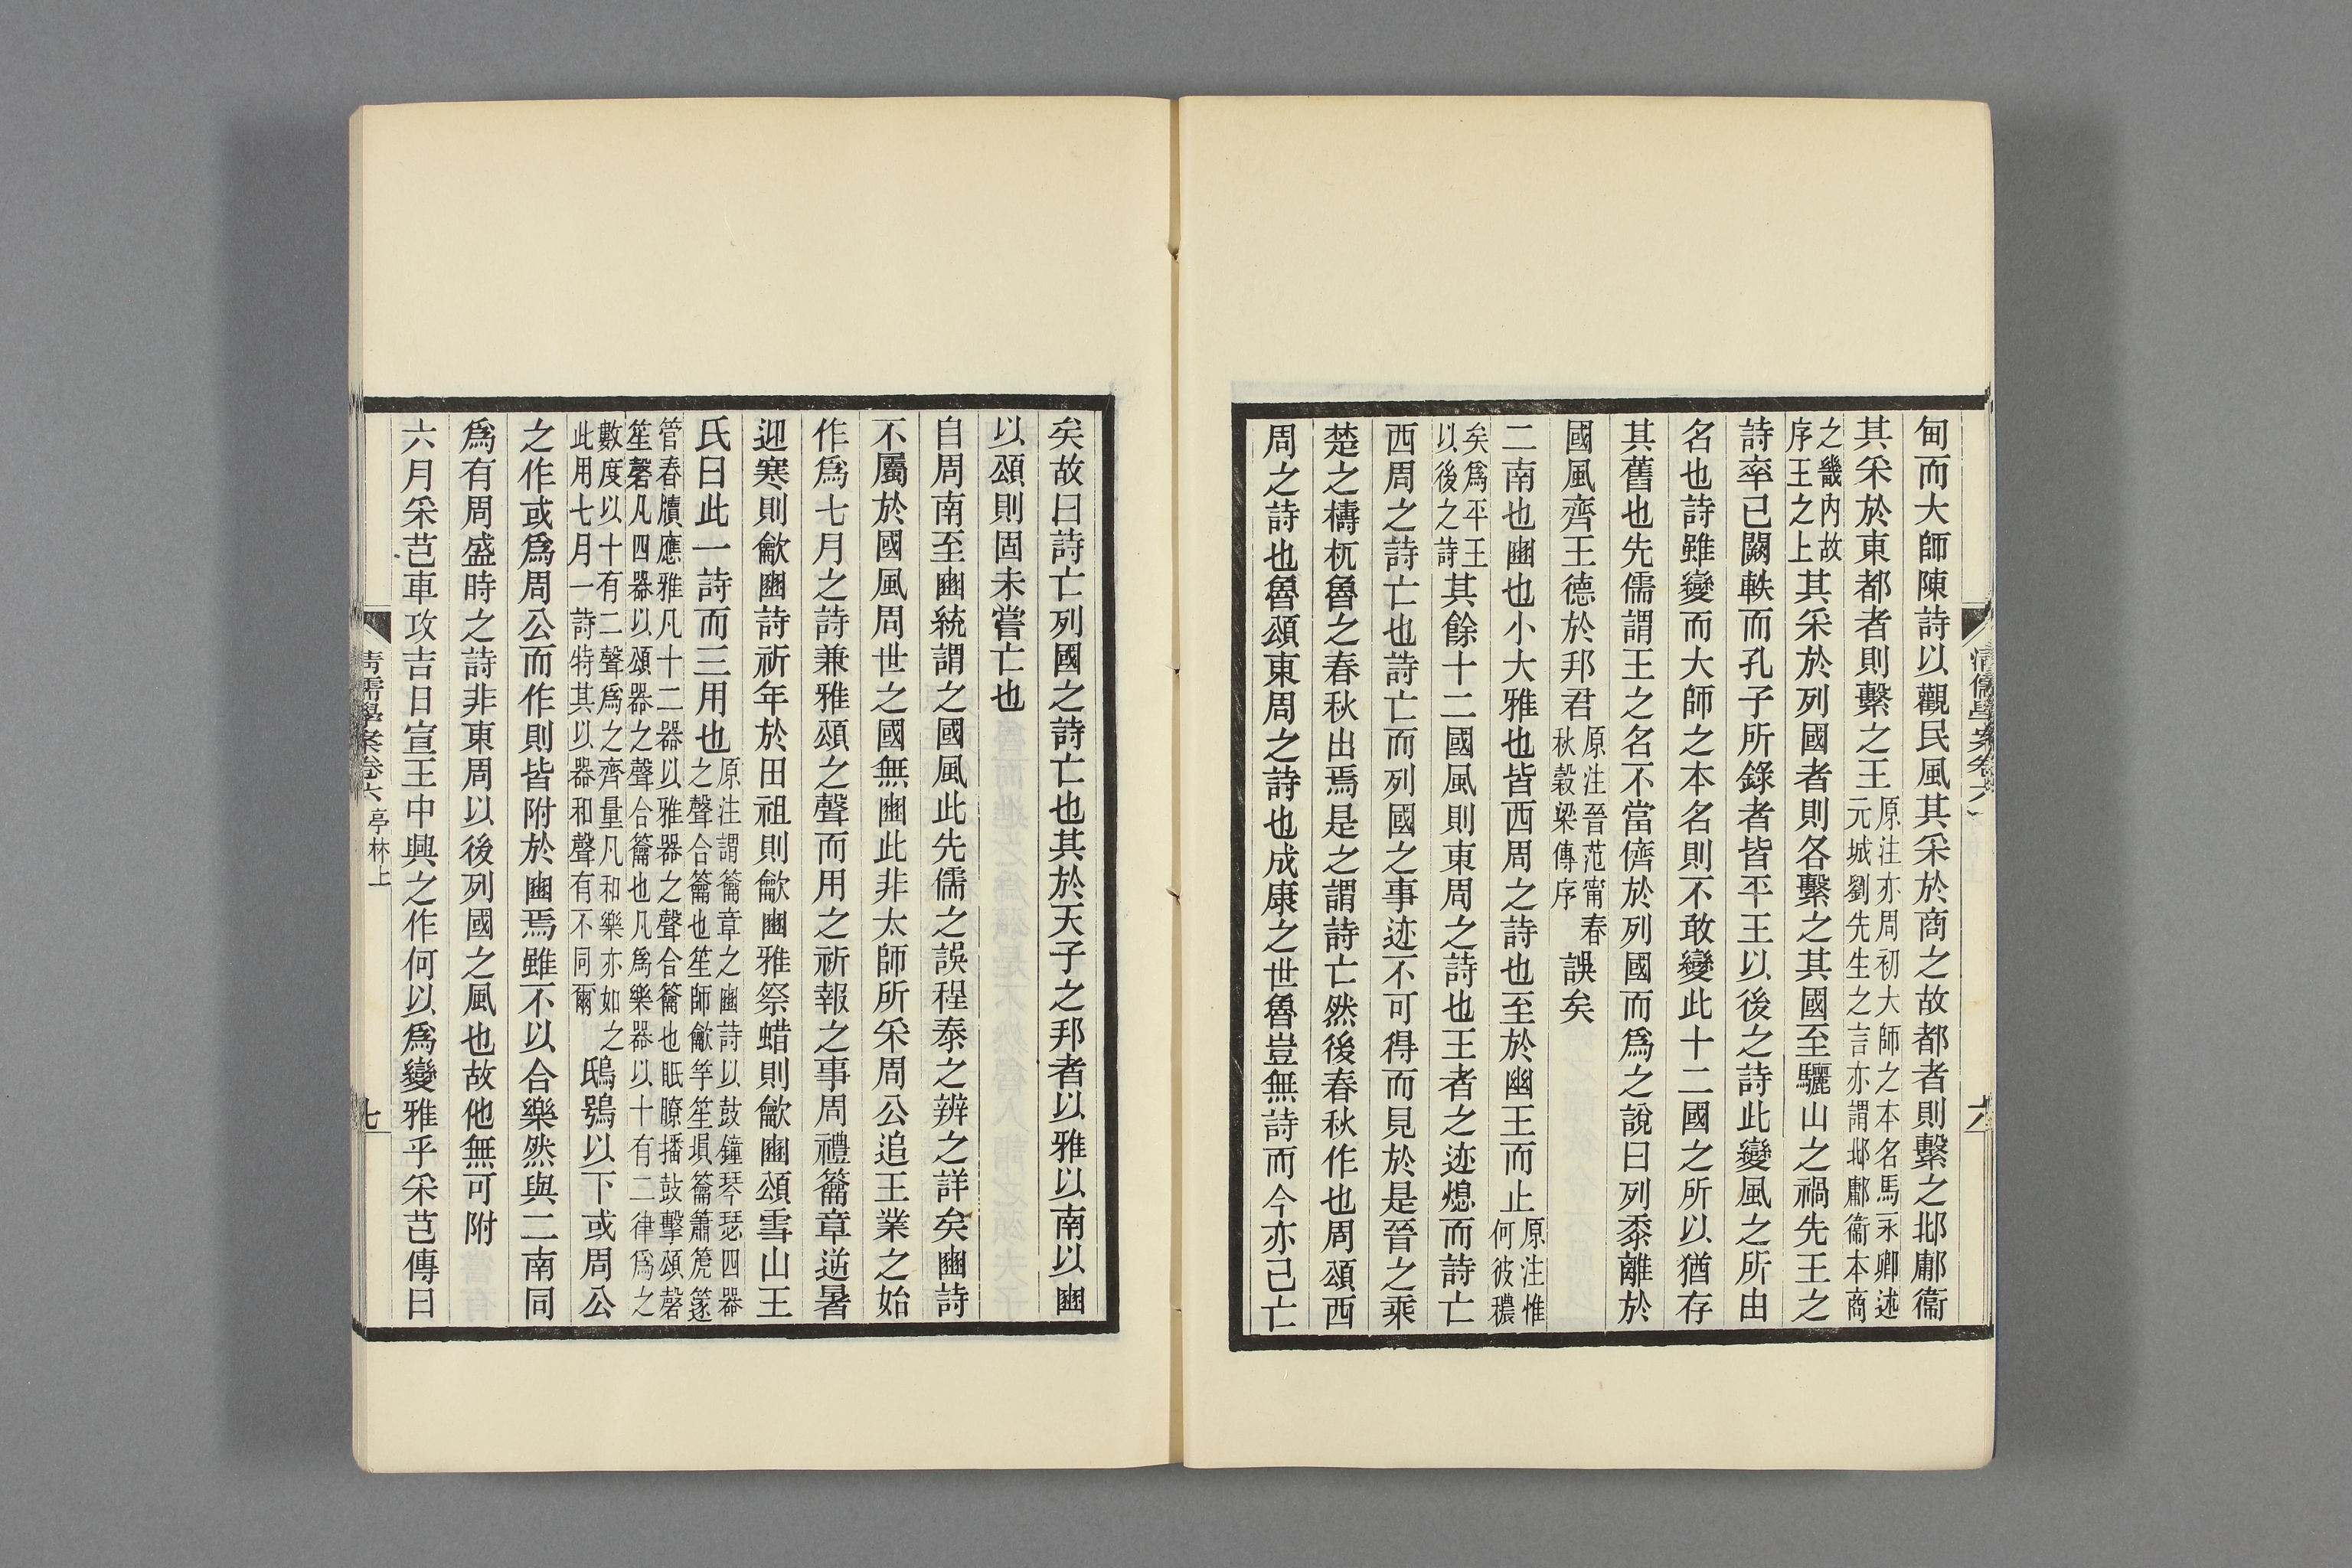 甸而大師陳詩以觀民風其采於商之故都者則繫之邶鄘衞
其采於東都者則繫之王原注亦周初大師之本名馬永卿述元城劉先生之言亦謂邶鄘衞本商
之畿內故序王之上其采於列國者則各繫之其國至驪山之禍先王之
詩率已闕軼而孔子所錄者皆平王以後之詩此變風之所由
名也詩雖變而大師之本名則不敢變此十二國之所以猶存
其舊也先儒謂王之名不當儕於列國而爲之說曰列黍離於
國風齊王德於邦君原注晉范甯春秋穀梁傳序誤矣
二南也豳也小大雅也皆西周之詩也至於幽王而止原注惟何彼穠
矣爲平王以後之詩其餘十二國風則東周之詩也王者之迹熄而詩亡
西周之詩亡也詩亡而列國之事迹不可得而見於是晉之乘
楚之檮杌魯之春秋出焉是之謂詩亡然後春秋作也周頌西
周之詩也魯頌東周之詩也成康之世魯豈無詩而今亦已亡
清儒學案卷六
六
矣故曰詩亡列國之詩亡也其於天子之邦者以雅以南以豳
以頌則固未嘗亡也
自周南至豳統謂之國風此先儒之誤程泰之辨之詳矣豳詩
不屬於國風周世之國無豳此非太師所采周公追王業之始
作爲七月之詩兼雅頌之聲而用之祈報之事周禮籥章逆暑
迎寒則龡豳詩祈年於田祖則龡豳雅祭蜡則龡豳頌雪山王
氏曰此一詩而三用也原注謂籥章之豳詩以鼓鐘琴瑟四器之聲合籥也笙師龡竽笙塤籥簫篪篴
管春牘應雅凡十二器以雅器之聲合籥也眡瞭播鼗擊頌磬笙磬凡四器以頌器之聲合籥也凡爲樂器以十有二律爲之
數度以十有二聲爲之齊量凡和樂亦如之此用七月一詩特其以器和聲有不同爾鴟鴞以下或周公
之作或爲周公而作則皆附於豳焉雖不以合樂然與二南同
爲有周盛時之詩非東周以後列國之風也故他無可附
六月采芑車攻吉日宣王中興之作何以爲變雅乎采芑傳曰
清儒學案卷六 亭林上
七